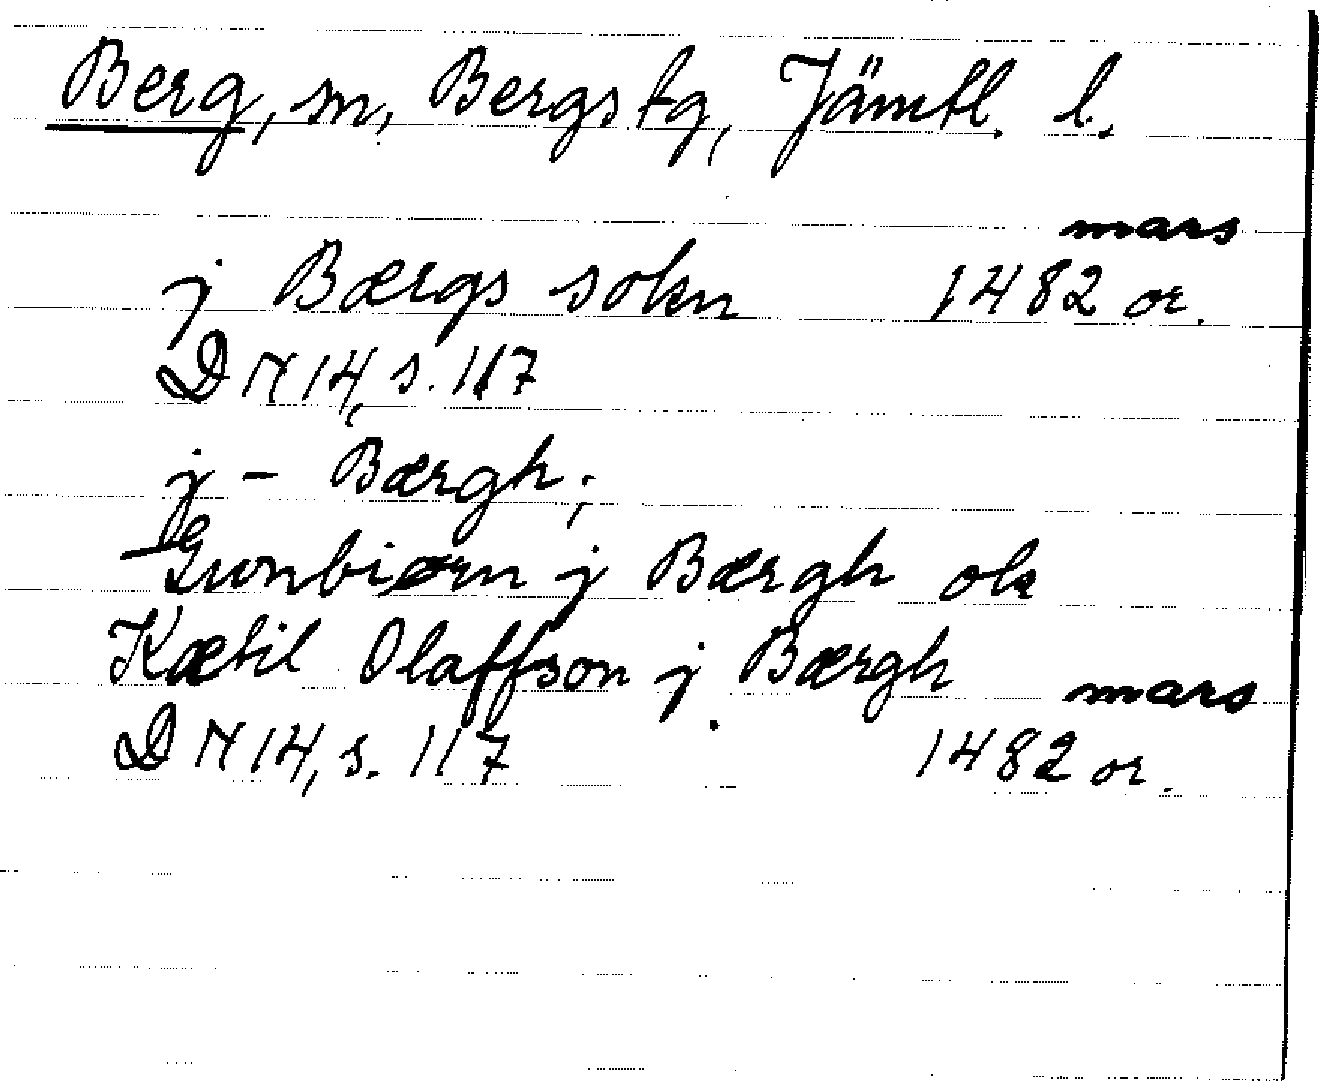 Berg, sn, Bergs tg, Jämtl. l.
mars
j Bærgs sokn 1482 or.
DN 14, s. 117
j - Bærgh;
Gunbiørn j Bærgh ok
Kætil Olaffson j Bærgh mars
DN 14, s. 117 1482 or.